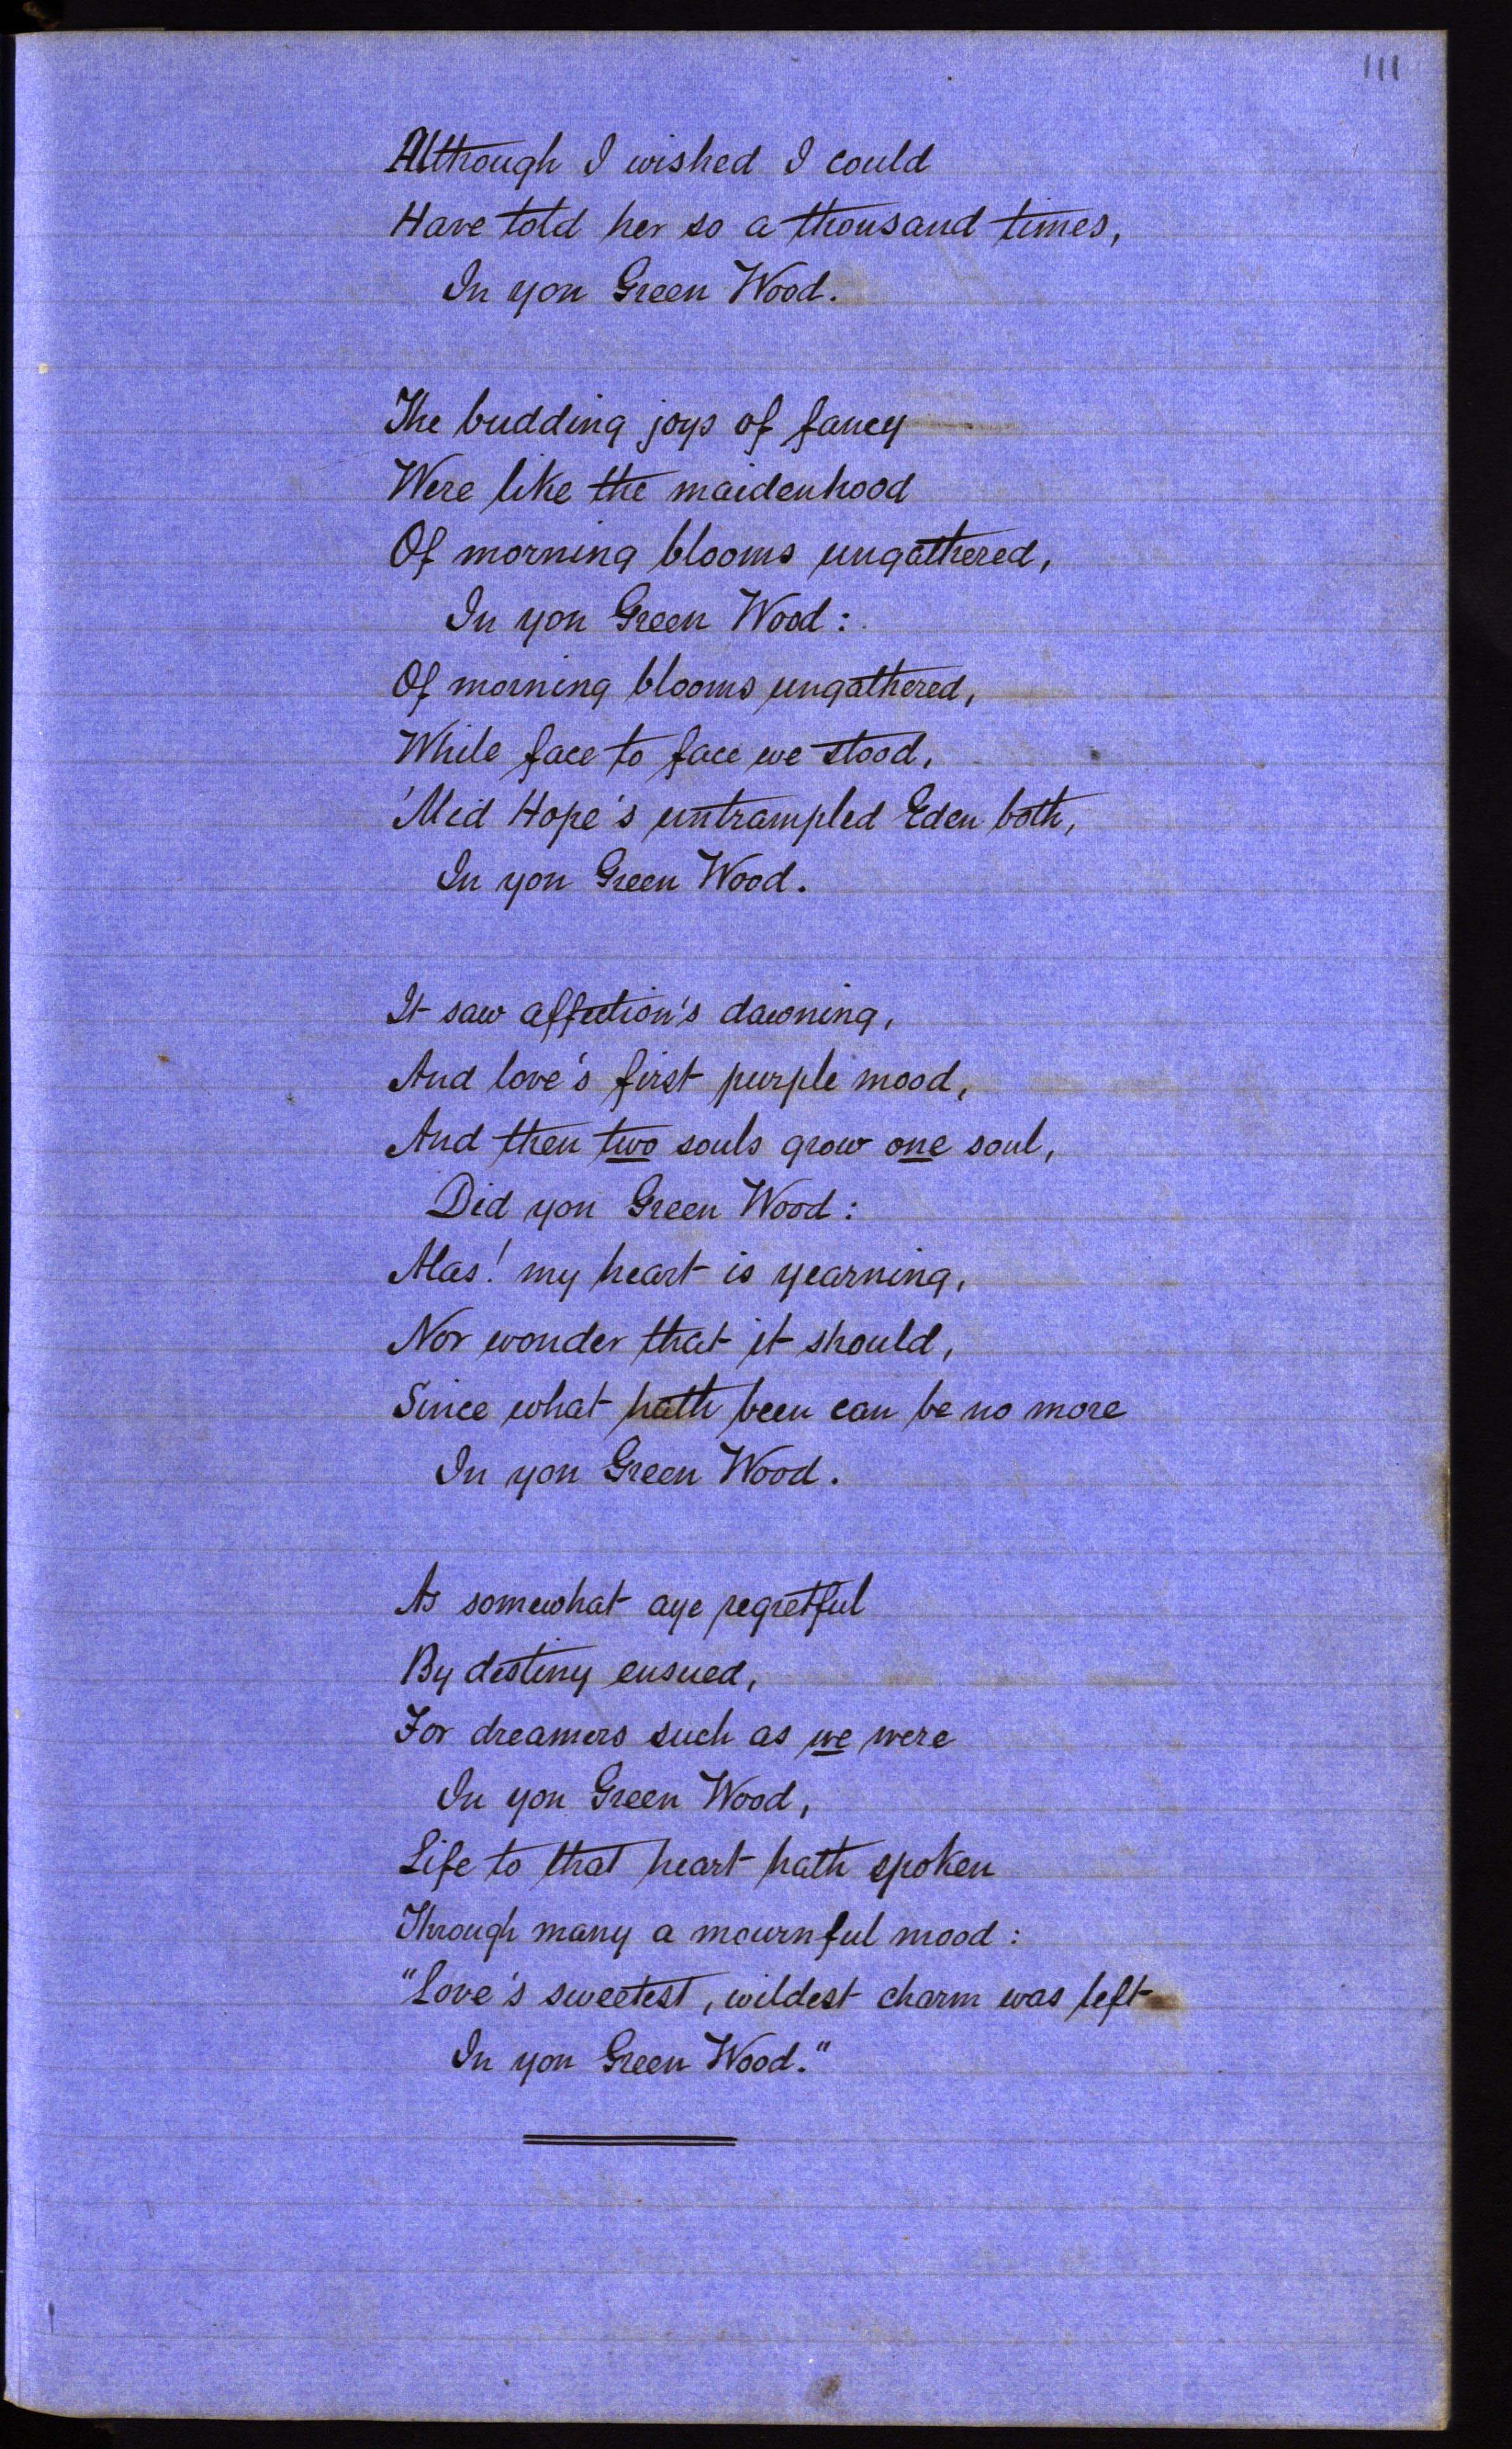 111
Although I wished I could
Have told her so a thousand times,
In yon Green Wood.
The budding joys of fancy
Were like the maidenhood
Of morning blooms ungathered,
In yon Green Wood:
Of morning blooms ungathered,
While face to face we stood,
'Mid Hope's untrampled Eden both,
In yon Green Wood.
It saw affection's dawning,
And love's first purple mood,
And then two souls grow one soul,
Did yon Green Wood:
Alas! my heart is yearning,
Nor wonder that it should,
Since what hath been can be no more
In yon Green Wood.
As somewhat aye regretful
By destiny ensued,
For dreamers such as we were
In yon Green Wood,
Life to that heart hath spoken
Through many a mournful mood:
"Love's sweetest, wildest charm was left
In yon Green Wood."